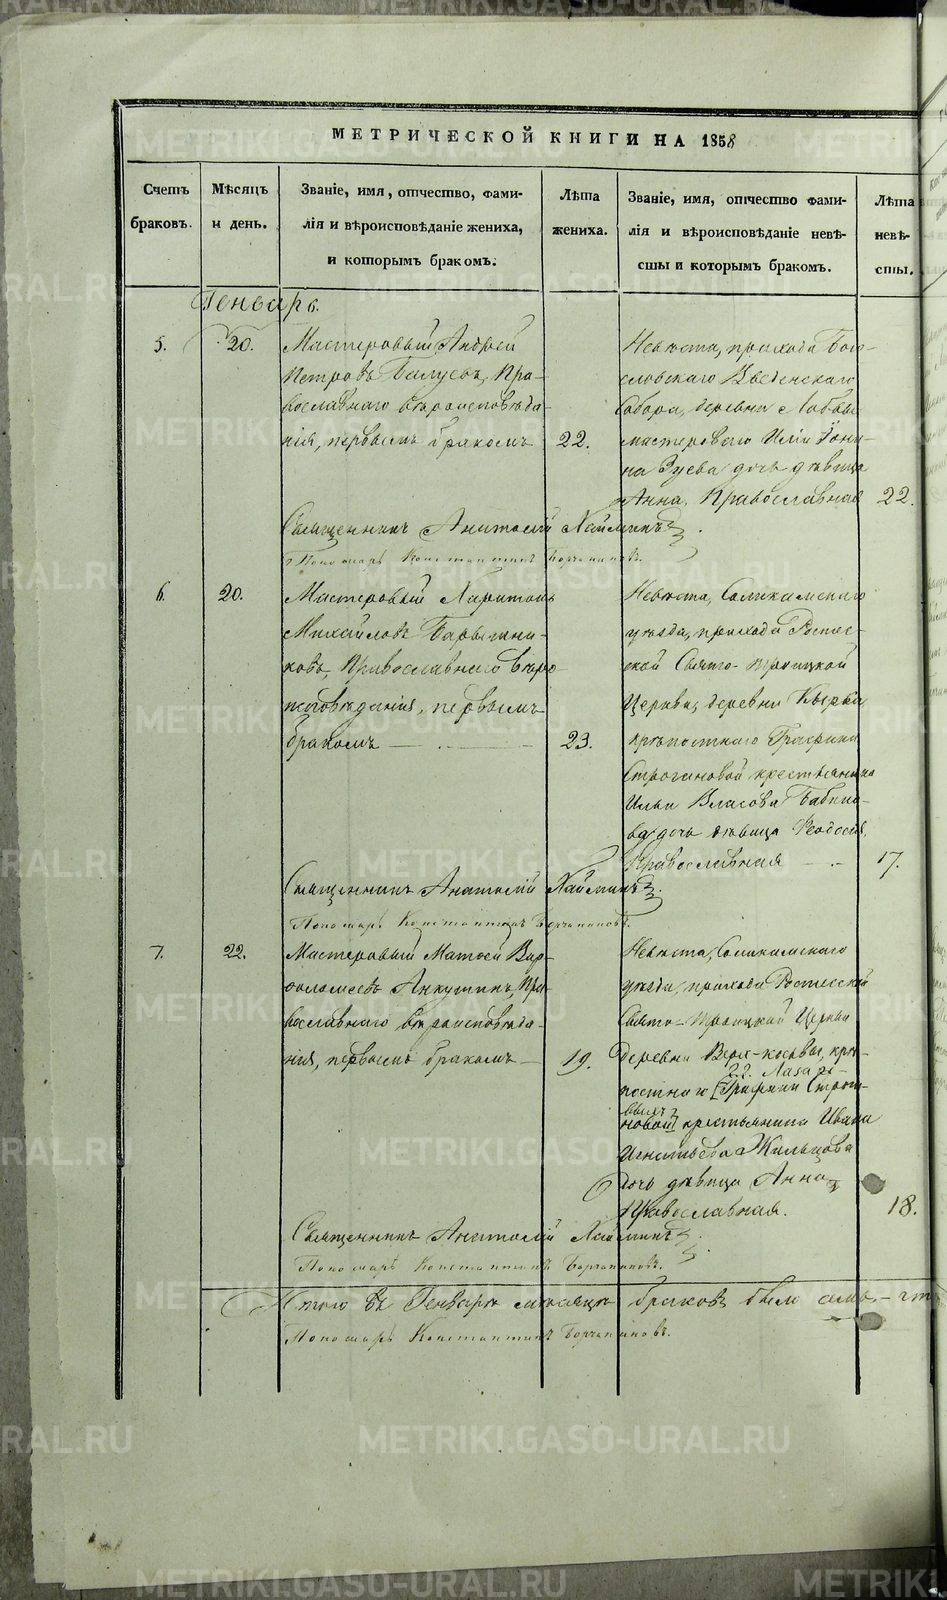 МЕТРИЧЕСКОЙ КНИГИ НА 1858
Счетъ браковъ.
Мѣсяцъ и день.
Званіе, имя, отчество, фами-
лія и вѣроисповѣданіе жениха,
и которымъ бракомъ.
Лѣта жениха.
Званіе, имя, отчество фами-
лія и вѣроисповѣданіе невѣ-
сты и которымъ бракомъ.
Лѣта невѣ-
сты.
Генварь.
5.
20.
Мастеровый Андрей
Петровъ Балуевъ, Пра-
вославнаго вѣроисповѣда-
нія, первымъ бракомъ
22.
Невѣста, прихода Бого-
словскаго Введенскаго
Собора, деревни Лобвы
мастероваго Иліи
Зуева дочь дѣвица
Анна, Православная
22.
Священникъ Анатолій Хаймин
Пономарь Константинъ
6.
20.
Мастеровый Харитонъ
Михайловъ
ковъ, Православнаго вѣро
исповѣданія, первымъ
бракомъ
23.
Невѣста, Соликамскаго
уѣзда, прихода Ростес-
ской Свято-Троицкой
Церкви, деревни Кырьи,
крѣпостнаго Графини
Строгановой крестьянина
Ильи Власова Бабино-
ва дочь дѣвица Ѳеодосія,
Православная
17.
Священникъ Анатолій
Пономарь Константинъ
7.
22.
Мастеровый Матѳей Вар-
ѳоломеевъ Анкушинъ, Пра-
вославнаго вѣроисповѣда-
нія, первымъ бракомъ
19.
Невѣста, Соликамскаго
уѣзда, прихода Ростесской
Свято-Троицкой Церкви
деревни Верх-косьвы, крѣ-
постнаго [Графини Строга-
гг. Лазаре-
новой] крестьянина Ивана
выхъ
Игнатьева Жильцова
дочь дѣвица Анна
Православная.
18.
Священникъ Анатолій
Пономарь Константинъ
Итого въ Генварѣ мѣсяцѣ браковъ было семь.
Пономарь Константинъ
METRIKI.GASO-URAL.RU